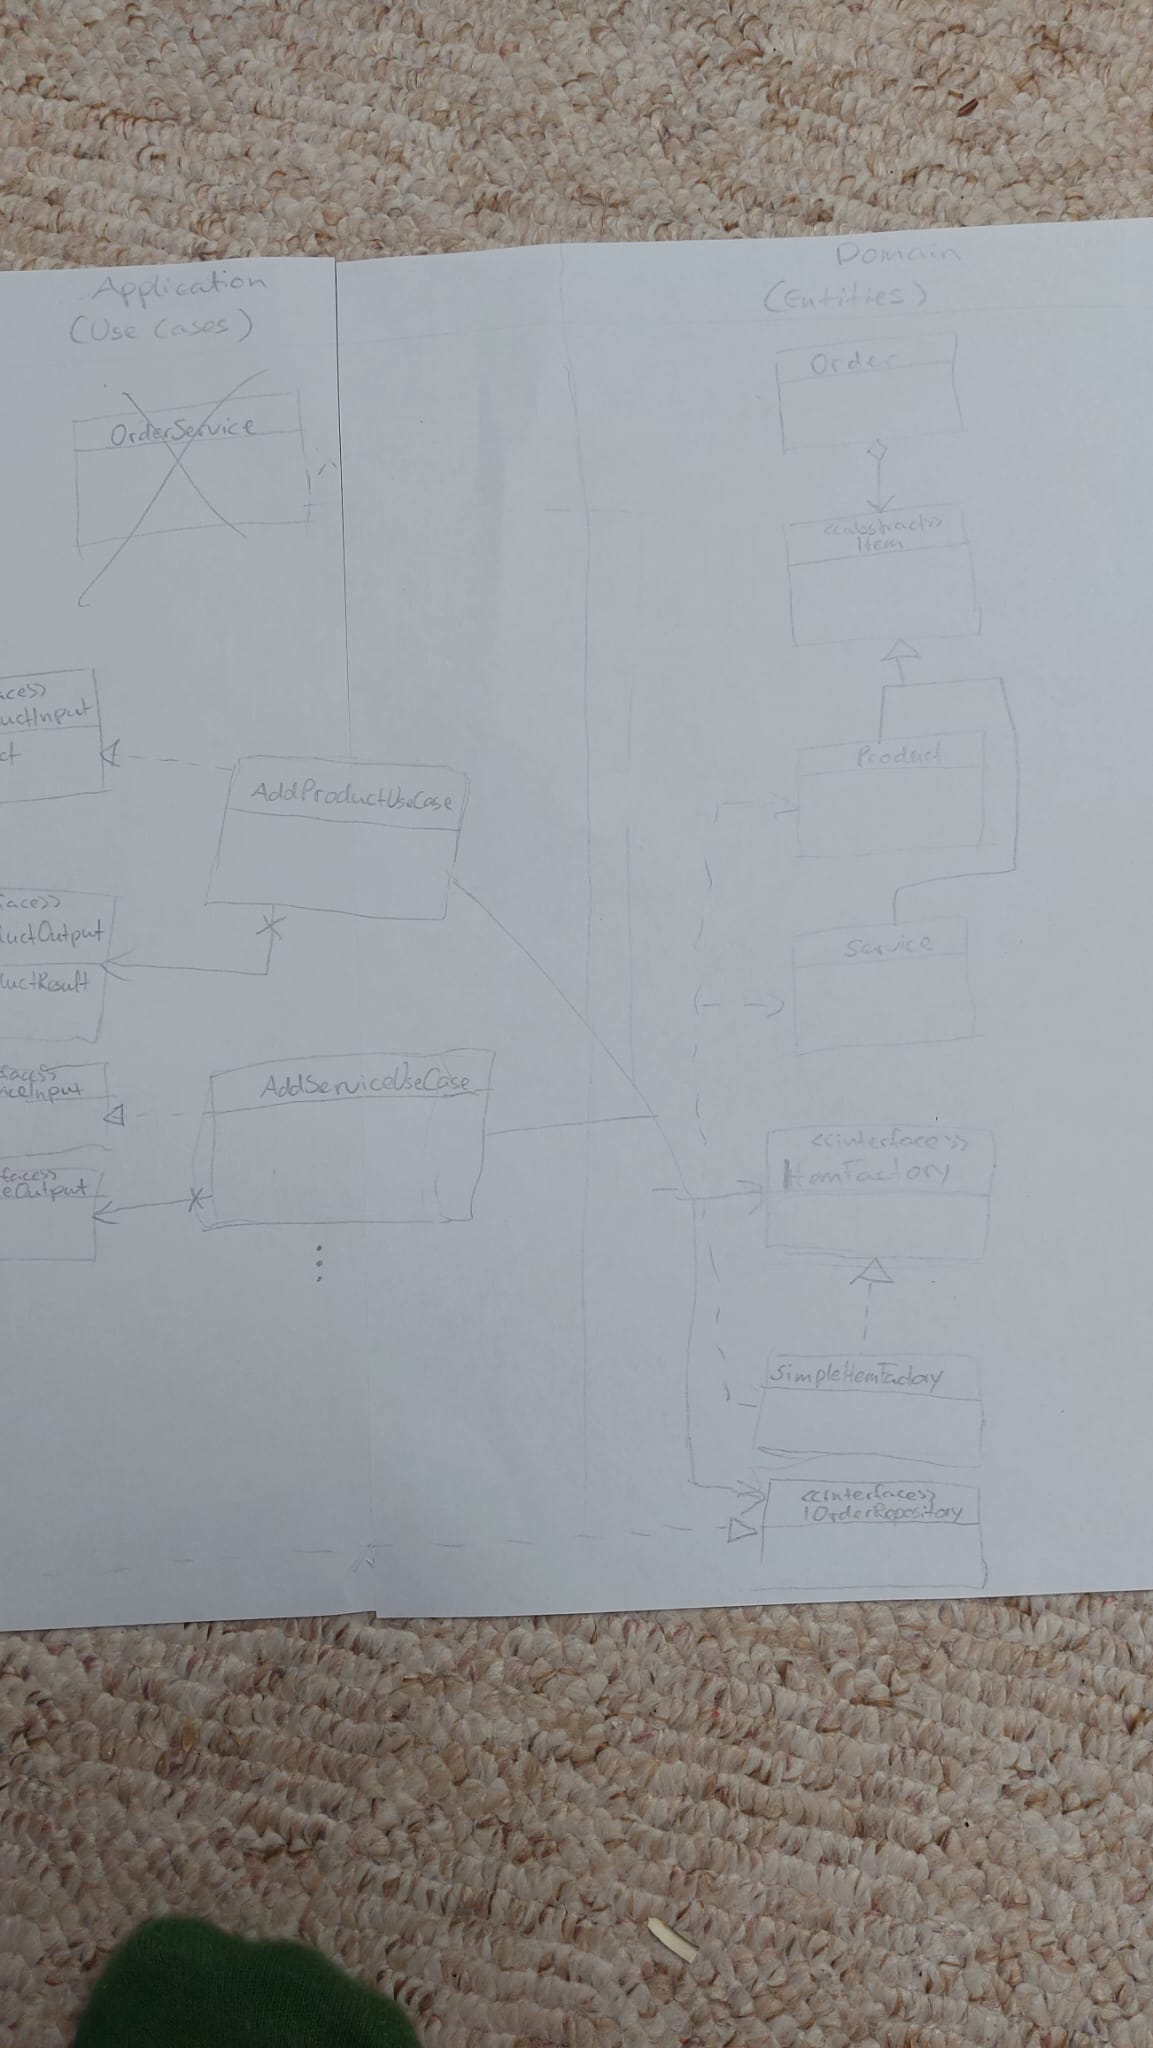 Application
(Use Cases)
OrderService
aces>>
uctInput
ct
AddProductUseCase
face>>
uctOutput
uctResult
faces>
viceInput
AddServiceUseCase
faces>
eOutput
Domain
(Entities)
Order
<<abstract>>
Item
Product
Service
<<interface>>
ItemFactory
SimpleItemFactory
<<interface>>
IOrderRepository